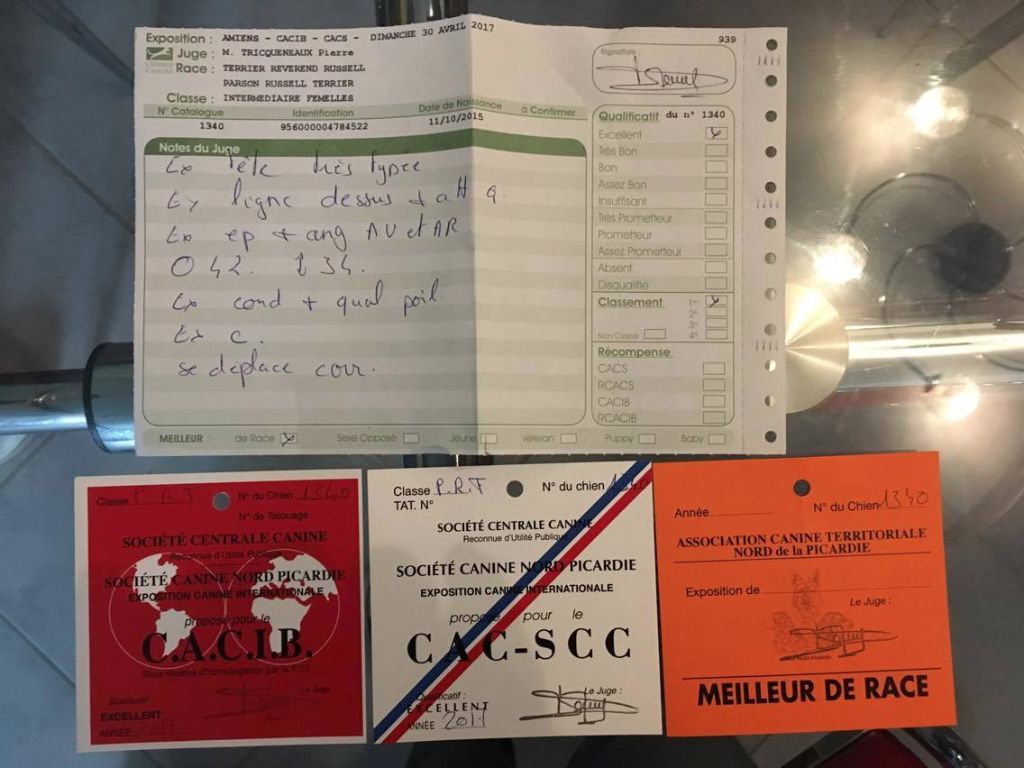 Exposition : AMIENS - CACIB - CACS - DIMANCHE 30 AVRIL 2017
939
Juge : M. TRICQUENEAUX Pierre
Race : TERRIER REVEREND RUSSELL
PARSON RUSSELL TERRIER
Classe : INTERMEDIAIRE FEMELLES
Signature :
N° Catalogue Identification Date de Naissance à Confirmer
1340 956000004784522 11/10/2015
Notes du Juge
Ex tête très typée
Ex ligne dessus + att q.
Ex ep + ang AV et AR.
O 42. ↕ 34.
Ex cond + qual poil.
Ex c.
se déplace corr.
Qualificatif du n° 1340
Excellent
Très Bon
Bon
Assez Bon
Insuffisant
Très Prometteur
Prometteur
Assez Prometteur
Absent
Disqualifié
Classement 1er
2e
3e
Non Classé 4e
Récompense
CACS
RCACS
CACIB
RCACIB
MEILLEUR : de Race Sexe Opposé Jeune Vétéran Puppy Baby
Classe P.R.T N° du Chien 1340
N° de Tatouage
SOCIÉTÉ CENTRALE CANINE
Reconnue d'Utilité Publique
SOCIÉTÉ CANINE NORD PICARDIE
EXPOSITION CANINE INTERNATIONALE
proposé pour le
C.A.C.I.B.
Sous réserve d'homologation par la F.C.I.
Qualificatif Le Juge
EXCELLENT
ANNÉE 2017
Classe P.R.T N° du chien 1340
TAT. N°
SOCIÉTÉ CENTRALE CANINE
Reconnue d'Utilité Publique
SOCIÉTÉ CANINE NORD PICARDIE
EXPOSITION CANINE INTERNATIONALE
proposé pour le
CAC-SCC
Qualificatif : Le Juge :
EXCELLENT
ANNÉE 2017
Année N° du Chien 1340
ASSOCIATION CANINE TERRITORIALE
NORD de la PICARDIE
Exposition de
Le Juge :
MEILLEUR DE RACE